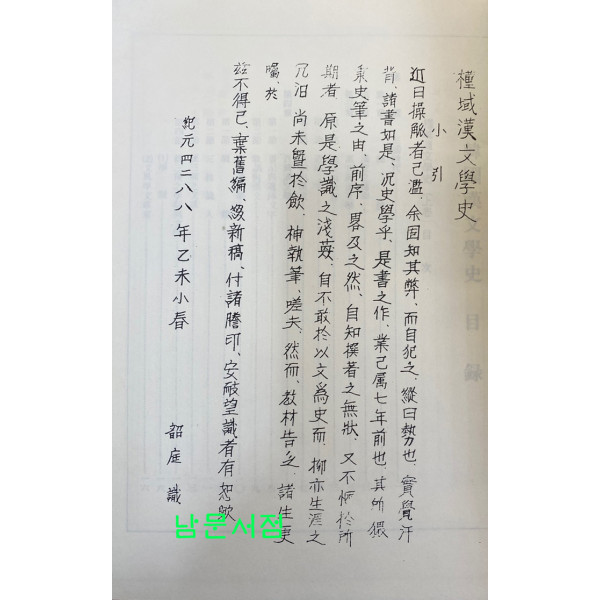 槿域漢文學史
小引
近日操觚者已濫、余固知其弊、而自犯之、縱曰勢也、實覺汗
背、諸書如是、況史學乎、是書之作、業已屬七年前也、其所
史筆之由、前序、畧及之然、自知撰著之無狀、又不 於所
期者、原是學識之淺 、自不敢於以文爲史而、抑亦生涯之
汨、尚未 於飮、 執筆、嗟夫、然而、敎材告乏、諸生更
囑、於
玆不得已、棄舊編、綴新稿、付諸謄印、安敢望識者有恕歟
紀元四二八八年乙未小春
韶庭 識
남문서점
文學史 目錄